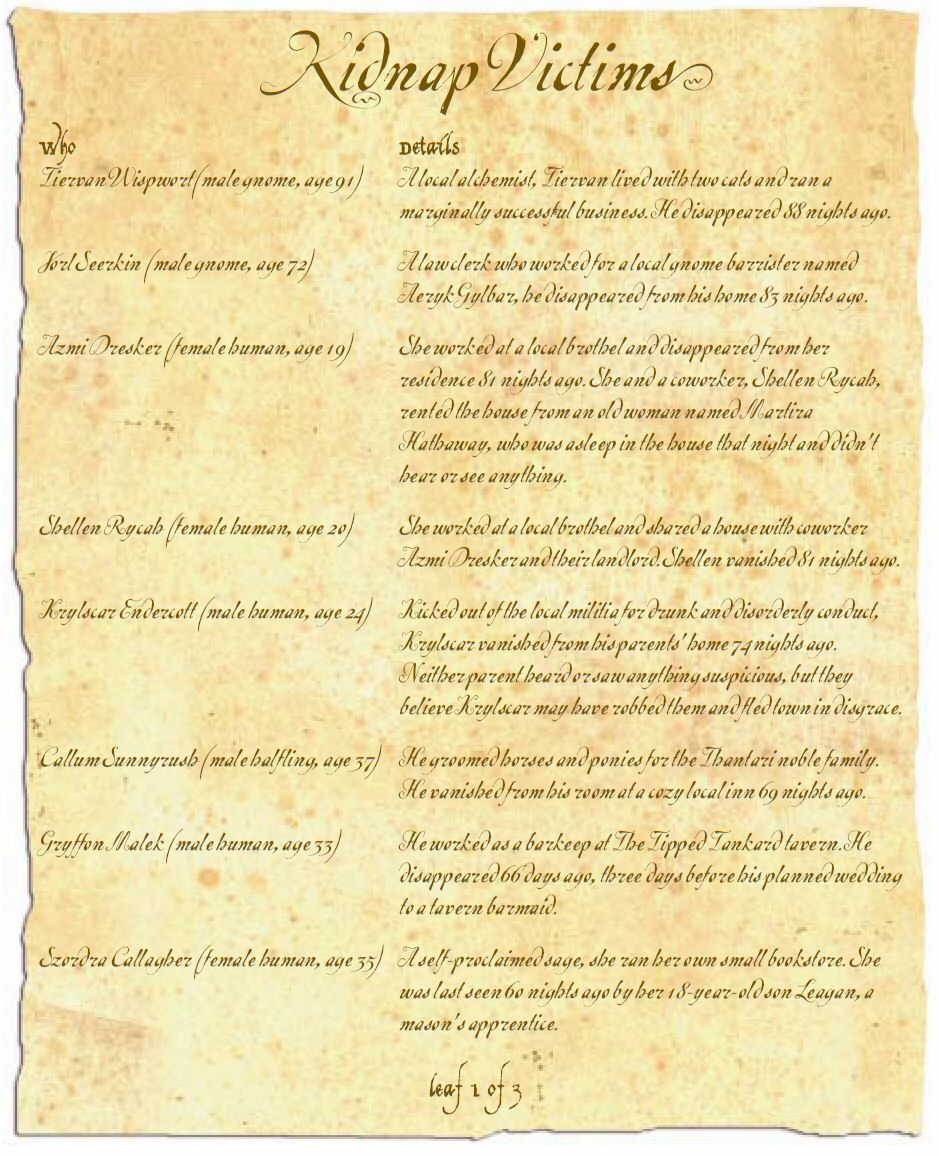 Kidnap Victims
Who Details
Tiervan Wispwort (male gnome, age 91) A local alchemist, Tiervan lived with two cats and ran a
marginally successful business. He disappeared 88 nights ago.
Jorl Seerkin (male gnome, age 72) A law clerk who worked for a local gnome barrister named
Aeryk Gylbar, he disappeared from his home 83 nights ago.
Azmi Dresker (female human, age 19) She worked at a local brothel and disappeared from her
residence 81 nights ago. She and a coworker, Shellen Rycah,
rented the house from an old woman named Martira
Hathaway, who was asleep in the house that night and didn't
hear or see anything.
Shellen Rycah (female human, age 20) She worked at a local brothel and shared a house with coworker
Azmi Dresker and their landlord. Shellen vanished 81 nights ago.
Krylscar Endercott (male human, age 24) Kicked out of the local militia for drunk and disorderly conduct,
Krylscar vanished from his parents' home 74 nights ago.
Neither parent heard or saw anything suspicious, but they
believe Krylscar may have robbed them and fled town in disgrace.
Callum Sunnyrush (male halfling, age 37) He groomed horses and ponies for the Thantari noble family.
He vanished from his room at a cozy local inn 69 nights ago.
Gryffon Malek (male human, age 33) He worked as a barkeep at The Tipped Tankard tavern. He
disappeared 66 days ago, three days before his planned wedding
to a tavern barmaid.
Szordra Callagher (female human, age 35) A self-proclaimed sage, she ran her own small bookstore. She
was last seen 60 nights ago by her 18-year-old son Leagan, a
mason's apprentice.
leaf 1 of 3